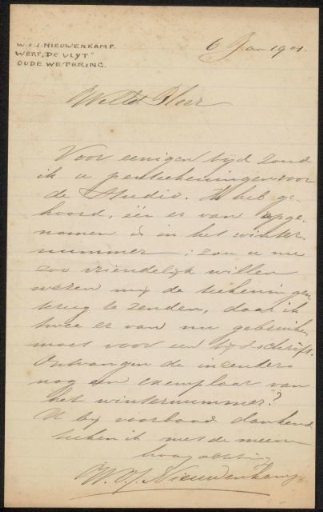 W.O.J. NIEUWENKAMP.
WERF "DE VLYT"
OUDE WETERING.
6 Jan 1901.
WelEd Heer
Voor eenigen tijd zond
ik u penteekeningen voor
de Studio. Ik heb ge-
hoord, één er van opge-
nomen is in het winter-
nummer; zou u nu
zoo vriendelijk willen
wezen mij de teekeningen
terug te zenden, daar ik
twee er van nu gebruiken
moet voor een tijdschrift.
Ontvangen de inzenders
nog een exemplaar van
het winternummer?
U bij voorbaat dankend
teeken ik met de meeste
hoogachting
W.O.J. Nieuwenkamp